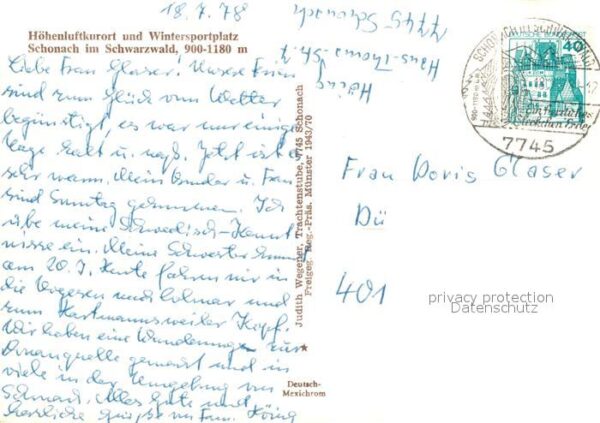 18.7.78
Höhenluftkurort und Wintersportplatz
Schonach im Schwarzwald, 900-1180 m
Liebe Frau Glaser! Unsere Ferien
sind zum Glück vom Wetter
begünstigt, es war nur einige
Tage kalt u. naß. Jetzt ist es
sehr warm. Mein Bruder u. Frau
sind Sonntag gekommen. Ich
übe meine Schwedisch-Kennt
nisse ein. Meine Schwester kommt
am 20.7. Heute fahren wir in
die Vogesen und Colmar und
zum Hartmannsweiler Kopf.
Wir haben eine Wanderung zur
Donauquelle gemacht und
viele in der Umgebung von
Schonach. Alles Gute und
herzliche Grüße von Fam. König
König
Hans-Thoma-Str. 7
7745 Schonach
Judith Wegener, Trachtenstube, 7745 Schonach
Freigeg. Reg.-Präs. Münster 1943/70
Deutsch-
Mexichrom
SCHONACH IM SCHWARZWALD
900-1180 m
7745
40
Frau Doris Glaser
Dü
401
privacy protection
Datenschutz